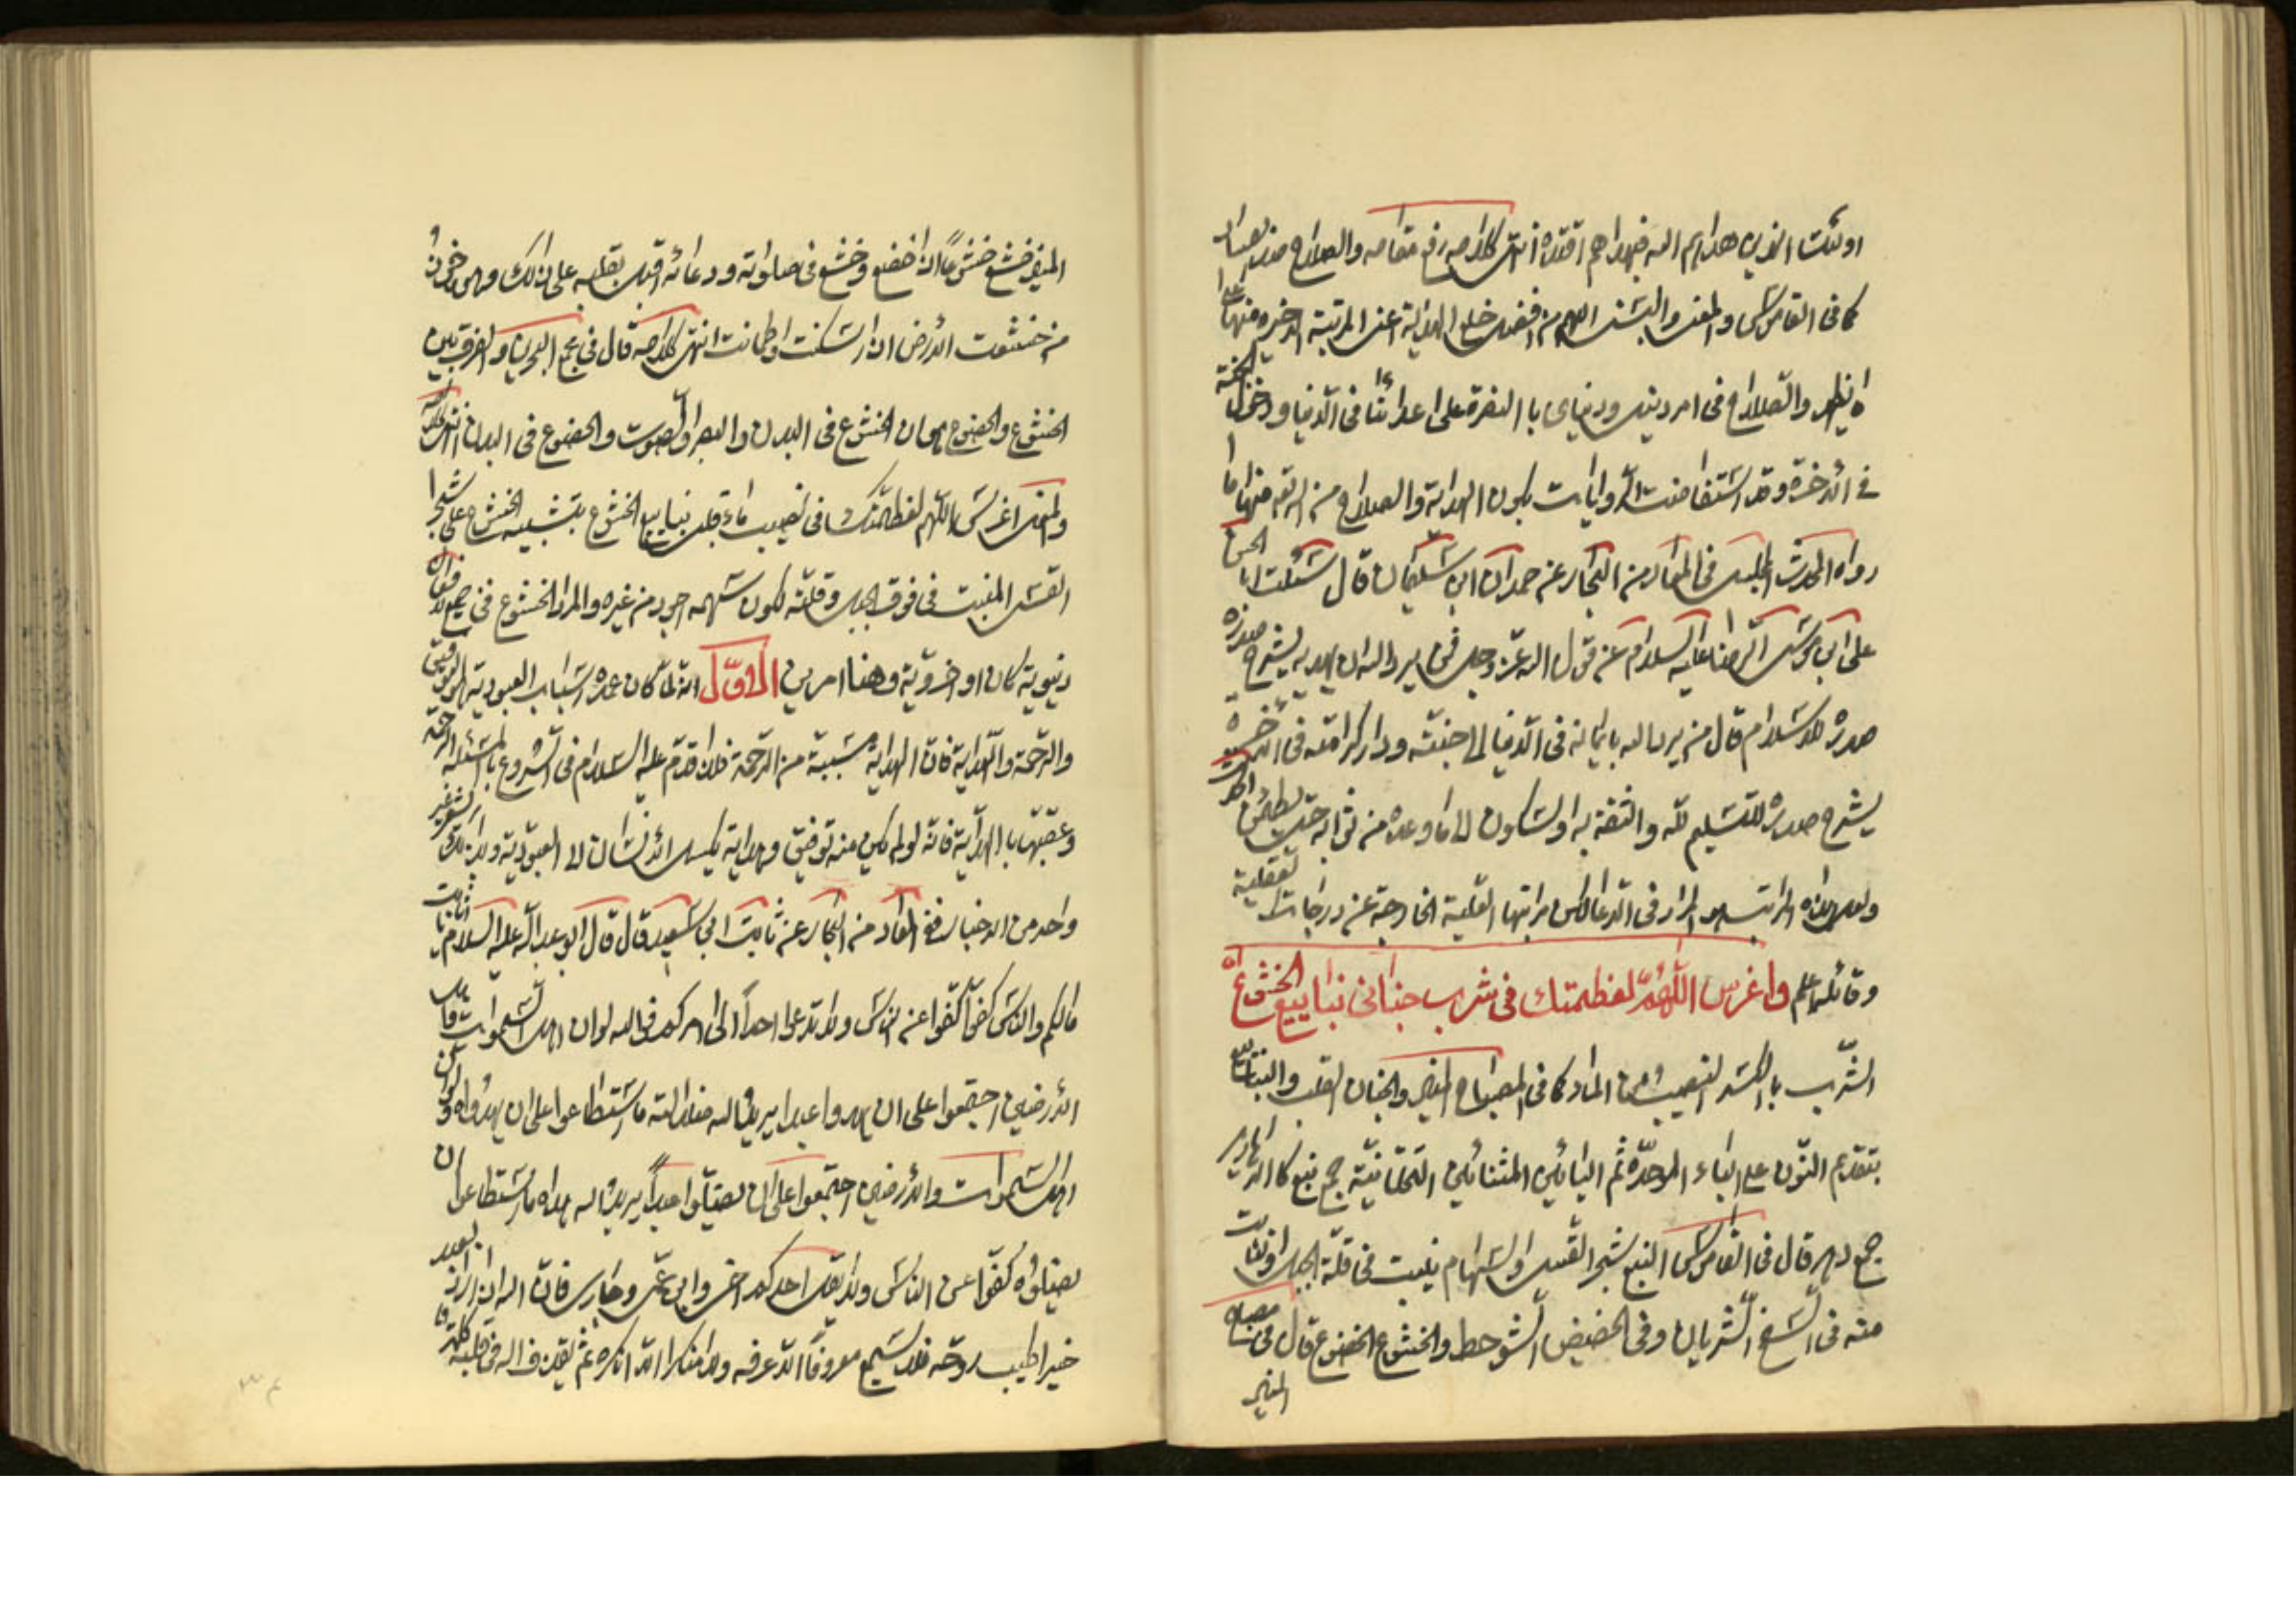 اولئك الذين هداهم الله فبهداهم اقتده انتهى كلامه رفع مقامه والصلاح ضد الفساد
كما فى القاموس والمعنى والبسنى اللهم من افضل خلع الهداية اعنى المرتبة الاخيرة منها
والصلاح فى امر دينى ودنياى با النصرة على اعدائنا فى الدنيا ودخول الجنة
فى الاخرة وقد استفاضت الروايات بكون الهداية والصلاح من الله تعه منها ما
رواه المحدث المجلسى فى المعاد من البحار عن حمدان ابن سليمان قال سئلت ابا الحسن
على ابن موسى الرضا عليه السلام عن قول الله عز وجل فمن يرد الله ان يهديه يشرح صدره
صدره للاسلام قال من يرد الله بايمانه فى الدنيا الى جنته ودار كرامته فى الاخرة
يشرح صدره للتسليم لله والثقة به والسكون الى ما وعده من ثوابه حتى يطمئن
ولعل هذه المراتب هو المراد فى الدعا لكن مراتبها القلبية الخارجة عن درجات
وقائلها اعلم واغرس اللهم لعظمتك فى شرب جنانى ينابيع الخشوع
الشرب با الكسر النصيب من الماء كما فى المصباح المنير والجنان القلب والينابيع
بتقديم النون على الباء الموحدة ثم اليائين المثناتين التحتانية جمع نبع كا الدهارير
جمع دهر قال فى القاموس النبع شجر القسى والسهام ينبت فى قلة الجبل والنابت
منه فى السفح الشريان وفى الحضيض الشوحط والخشوع الخضوع قال فى مصباح
المنير
المنير خشع خشوعاً اذا خضع وخشع فى صلواته ودعائه اقبل بقلبه على ذلك وهو مأخوذ
من خشعت الارض اذا سكنت واطمانت انتهى كلامه قال فى مجمع البحرين والفرق بين
الخشوع والخضوع هو ان الخشوع فى البدن والبصر والصوت والخضوع فى البدن انتهى كلامه
والمعنى اغرس اللهم لعظمتك فى نصيب ماء قلبى ينابيع الخشوع بتشبيه الخشوع على شجر
القسى المنبت فى فوق الجبل وقلته لكون سهمه اجود من غيره والمراد الخشوع فى جميع
دنيوية كان او اخروية وهنا امرين الاوّل انه لما كان عمدة اسباب العبودية التوفيق
والرحمة والهداية فان الهداية مسببة من الرحمة فلذا قدّم عليه السلام فى الشروع بمسئلة الرحمة
وعقبها با الهداية فانه لو لم يكن منه توفيق وهداية لم يكمل الانسان الى العبودية
واحد من الاخبار ففى المعاد من البحار عن ثابت ابى سعيد قال قال ابو عبد الله عليه السلام يا ثابت
مالكم والناس كفوا كفوا عن الناس ولا تدعوا احداً الى امركم فوالله لو ان اهل السموات واهل
الارضين اجتمعوا على ان يهدوا عبدا يريد الله ضلالته ما استطاعوا على ان يهدوه ولو ان
اهل السموات والارضين اجتمعوا على ان يضلوا عبداً يريد الله هداه ما استطاعوا ان
يضلوه كفوا عن الناس ولا يقل احدكم اخى وابن عمى وجارى فان الله اذا اراد بعبد
خيرا طيب روحه فلا يسمع معروفاً الا عرفه ولا منكرا الا انكره ثم يقذف الله فى قلبه كلمة